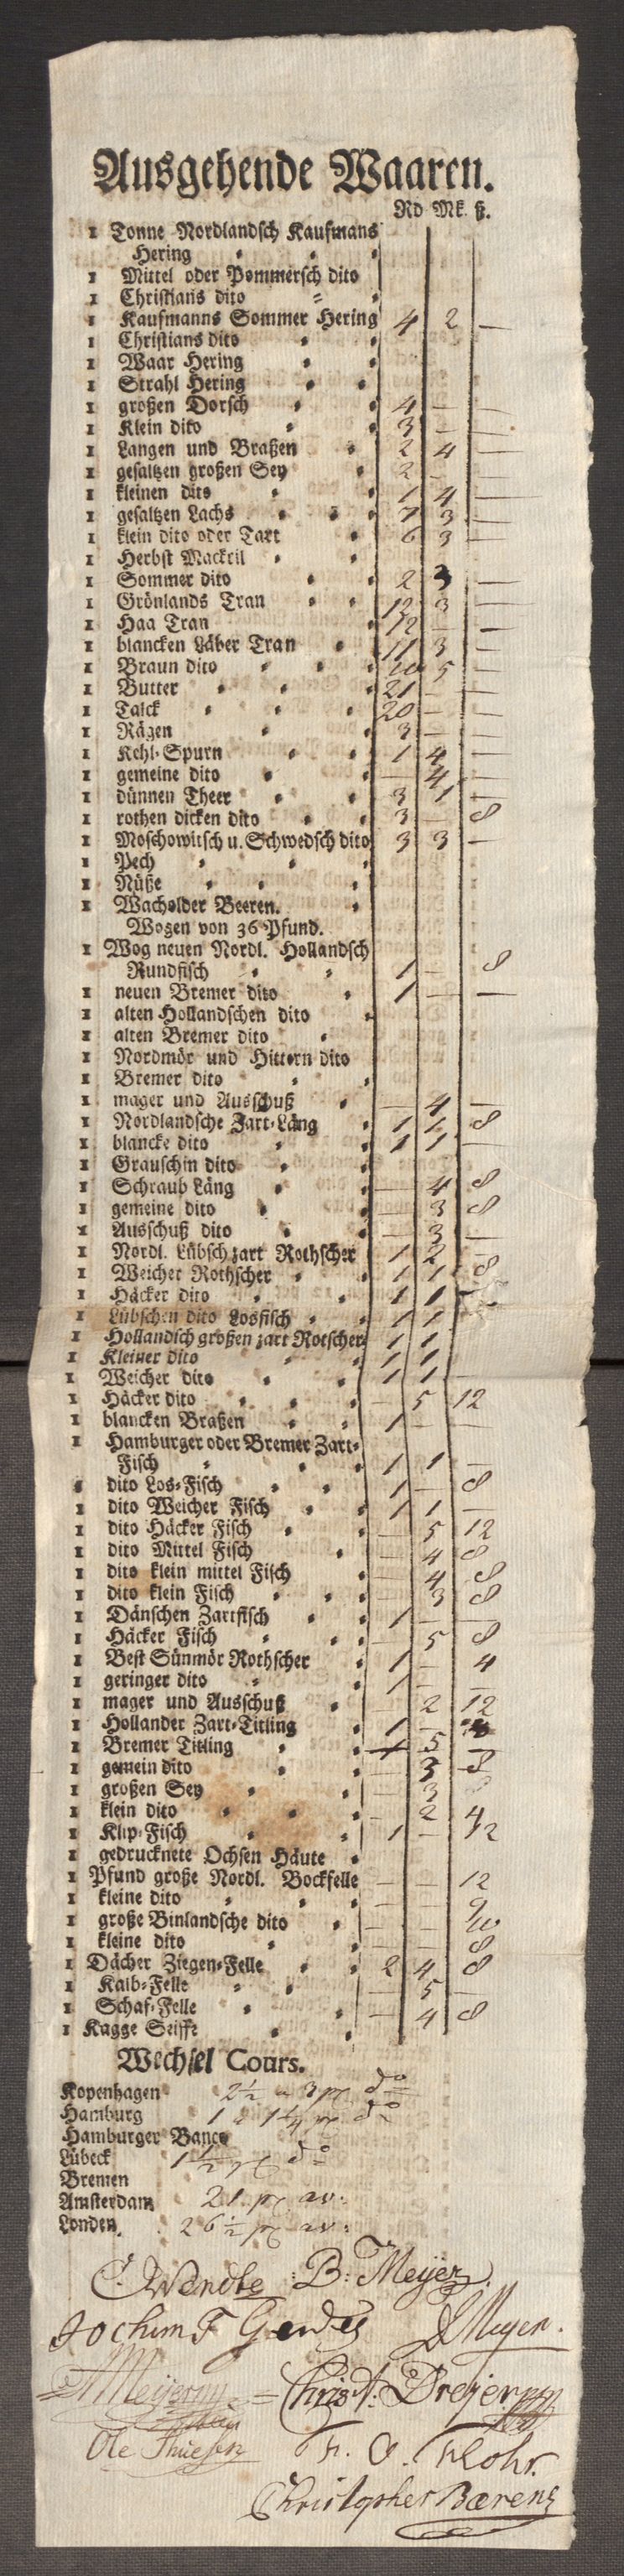 Ausgehende Waaren.
Rd Mk. ß.
1 Tonne Nordlandsch Kaufmans
Hering
1 Mittel oder Pommersch dito
1 Christians dito
1 Kaufmanns Sommer Hering 4 2 —
1 Christians dito
1 Waar Hering
1 Strahl Hering
1 großen Dorsch 4 — —
1 Klein dito 3 — —
1 Langen und Braßen 2 4 —
1 gesaltzen großen Sey 2 — —
1 kleinen dito 1 4 —
1 gesaltzen Lachs 7 3 —
1 klein dito oder Tart 6 3 —
1 Herbst Mackril
1 Sommer dito 2 3 —
1 Grönlands Tran 12 3 —
1 Haa Tran 12 — —
1 blancken Läber Tran 11 3 —
1 Braun dito 10 5 —
1 Butter 21 — —
1 Talck 20 — —
1 Rägen 3 — —
1 Kehl-Spurn 1 4 —
1 gemeine dito — 4 —
1 dünnen Theer 3 1 —
1 rothen dicken dito 3 — 8
1 Moschowitsch u. Schwedsch dito 3 3 —
1 Pech
1 Nüße
1 Wacholder Beeren.
Wogen von 36 Pfund.
1 Wog neuen Nordl. Hollandsch
Rundfisch 1 — 8
1 neuen Bremer dito 1 — —
1 alten Hollandschen dito
1 alten Bremer dito
1 Nordmör und Hittern dito
1 Bremer dito
1 mager und Ausschuß — 4 —
1 Nordlandsche Zart-Läng 1 1 8
1 blancke dito 1 1 —
1 Grauschin dito
1 Schraub Läng — 4 8
1 gemeine dito — 3 8
1 Ausschuß dito — 3 —
1 Nordl. Lübsch zart Rothscher 1 2 —
1 Weicher Rothscher 1 1 8
1 Häcker dito 1 1 —
1 Lübschen dito Losfisch 1 1
1 Hollandsch großen zart Rotscher 1 1
1 Kleiner dito 1 1
1 Weicher dito 1 1 —
1 Häcker dito — 5 12
1 blancken Braßen 1 — —
1 Hamburger oder Bremer Zart-
Fisch 1 1 —
1 dito Los-Fisch 1 — 8
1 dito Weicher Fisch 1 1 —
1 dito Häcker Fisch — 5 12
1 dito Mittel Fisch — 4 8
1 dito klein mittel Fisch — 4 8
1 dito klein Fisch — 3 8
1 Dänschen Zartfisch 1 — —
1 Häcker Fisch — 5 8
1 Best Sünmör Rothscher 1 — 4
1 geringer dito 1 — —
1 mager und Ausschuß — 2 12
1 Hollander Zart-Titling 1 —
1 Bremer Titling 5 —
1 gemein dito — 3 8
1 großen Sey — 3 8
1 klein dito — 2 4
1 Klip-Fisch 1 — 12
1 gedrucknete Ochsen Häute
1 Pfund große Nordl. Bockfelle — — 12
1 kleine dito — — 9
1 große Binlandsche dito — — 10
1 kleine dito — — 8
1 Dächer Ziegen-Felle 2 4 8
1 Kalb-Felle — 5 —
1 Schaf-Felle — 4 8
1 Kagge Seiffe
Wechsel Cours.
Kopenhagen 2½ a 3 pC do
Hamburg 1 a 1¼ pC do
Hamburger Banco
Lübeck 1½ pC do
Bremen
Amsterdam 21 pC av:
Londen. 26½ pC av:
C. Wendte B: Meyer
Jochim F Gerdes D Meyer.
A Meijerm Christ: Dreyer
Ole Thuesen F. C. Flohr.
Christopher Bærens